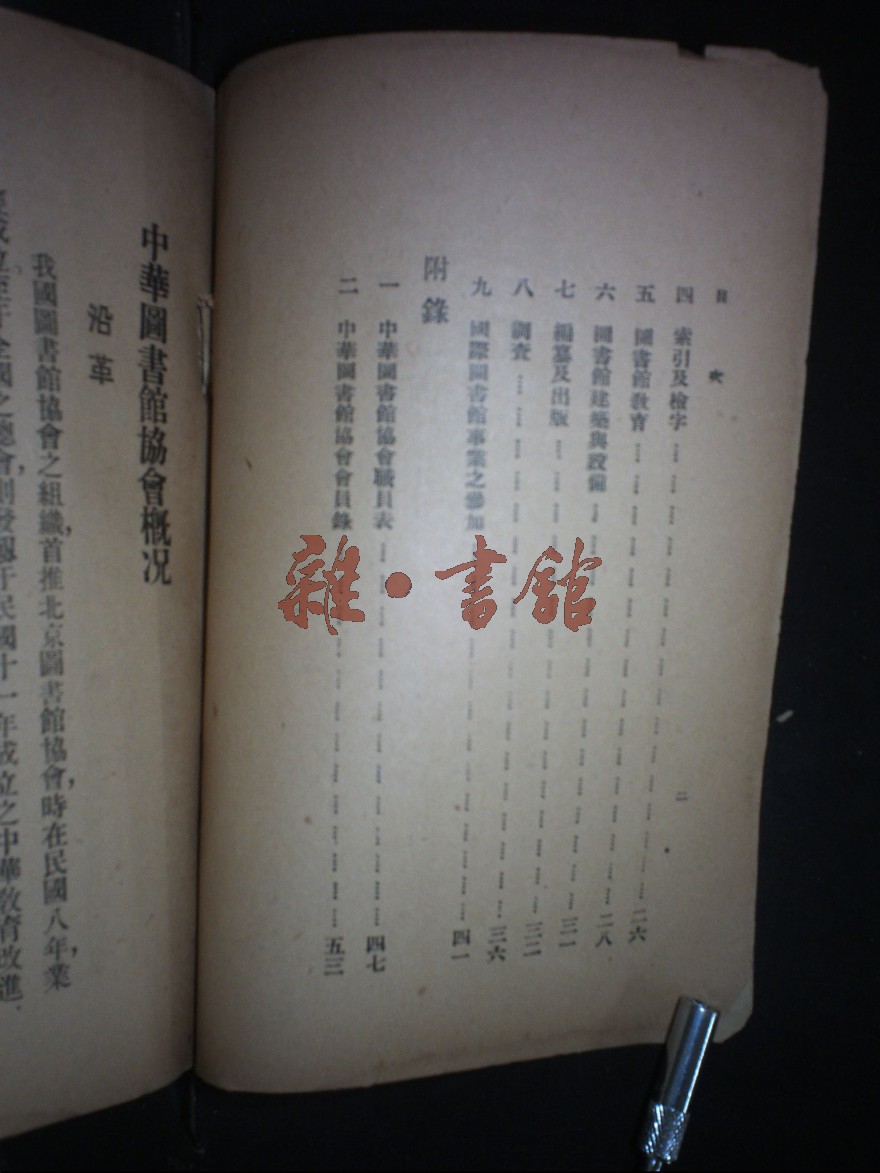 目次
四 索引及檢字……二六
五 圖書館教育……二八
六 圖書館建築與設備……三一
七 編纂及出版……三二
八 調查……三六
九 國際圖書館事業之參加……四一
附錄
一 中華圖書館協會職員表……四七
二 中華圖書館協會會員錄……五三
二
中華圖書館協會概况
沿革
我國圖書館協會之組織，首推北京圖書館協會，時在民國八年，業
成立，至于全國之總會，則發于民國十一年成立之中華教育改進
雜·書館